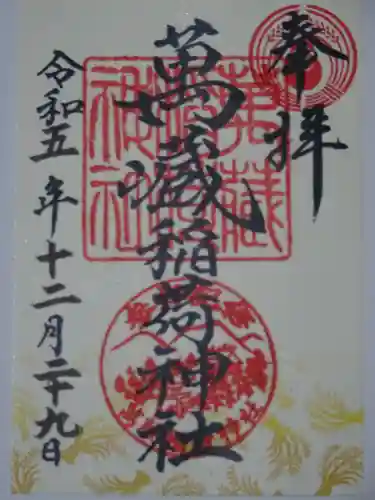 奉拝
萬蔵稲荷神社
令和五年十二月二十九日